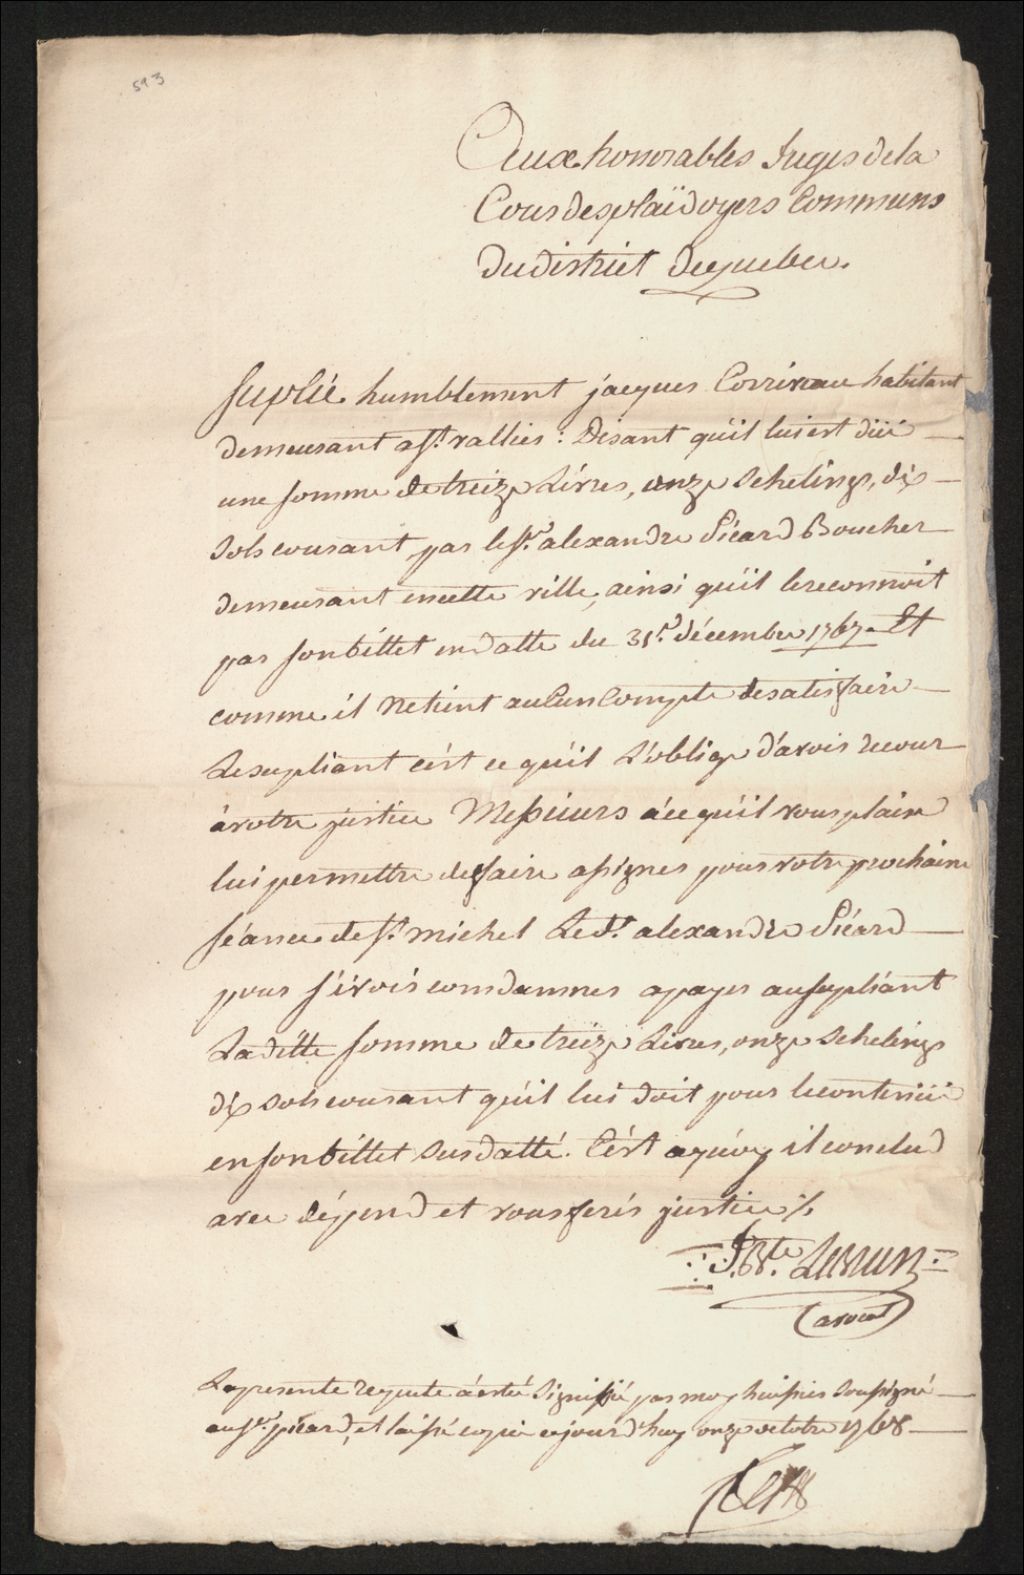 593
Aux honorables Juges dela
Cour desplaïdoyers Communs
Du district dequebec.
Suplié humblement jacques Corriveau habitant
demeurant a St. vallies : Disant qu'il lui est düe
une somme de treize Livres, onze Schelings, dix
Sols courant, par le Sr. alexandre Picard Boucher
demeurant en cette ville, ainsi qu'il le reconnoit
par son billet en datte du 31e. décembre 1767. Et
comme il ne tient aucun Compte de satisfaire
Le supliant c'est ce qu'il L'oblige d'avoir recour
à votre justice Messieurs à ce qu'il vous plaise
lui permettre de faire assigner pour votre prochaine
séance de St. michel Le dt. alexandre Picard
pour s'i voir comdamner a payer au supliant
La ditte somme de treize Livres, onze Schelings
dix Sols courant qu'il lui doit pour le contenüe
en son billet Susdatté. C'est a quoy il conclud
avec dépend et vous ferés justice /.
J. Bte. Lebrun
avocat
La presente requete à esté Signifié par moy huissier soussigné
au Sr. picard, et laissé copie ce jourd'huy onze octobre 1768